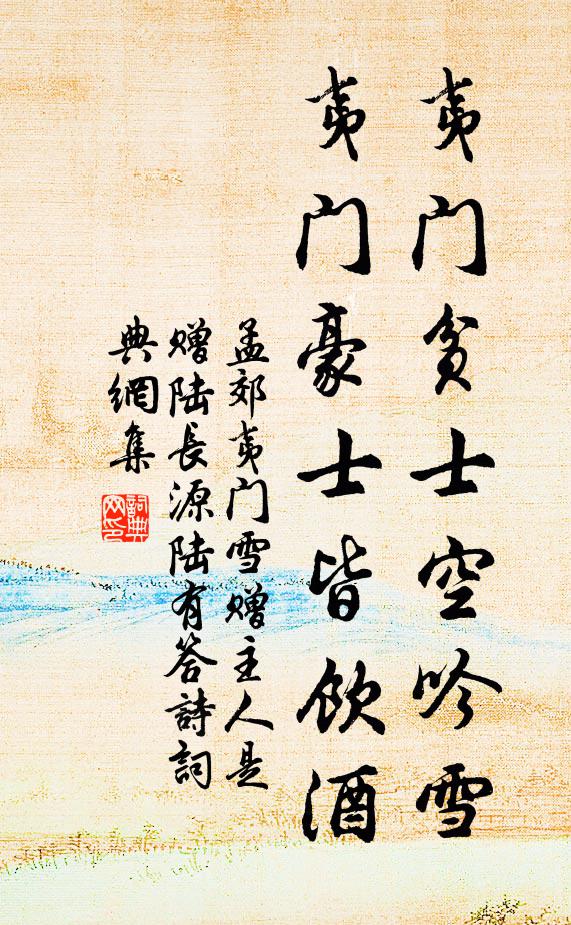 夷门贫士空吟雪
夷门豪士皆饮酒
孟郊夷门雪赠主人是
赠陆長源陆有答詩詞
典網集
詞典
网印